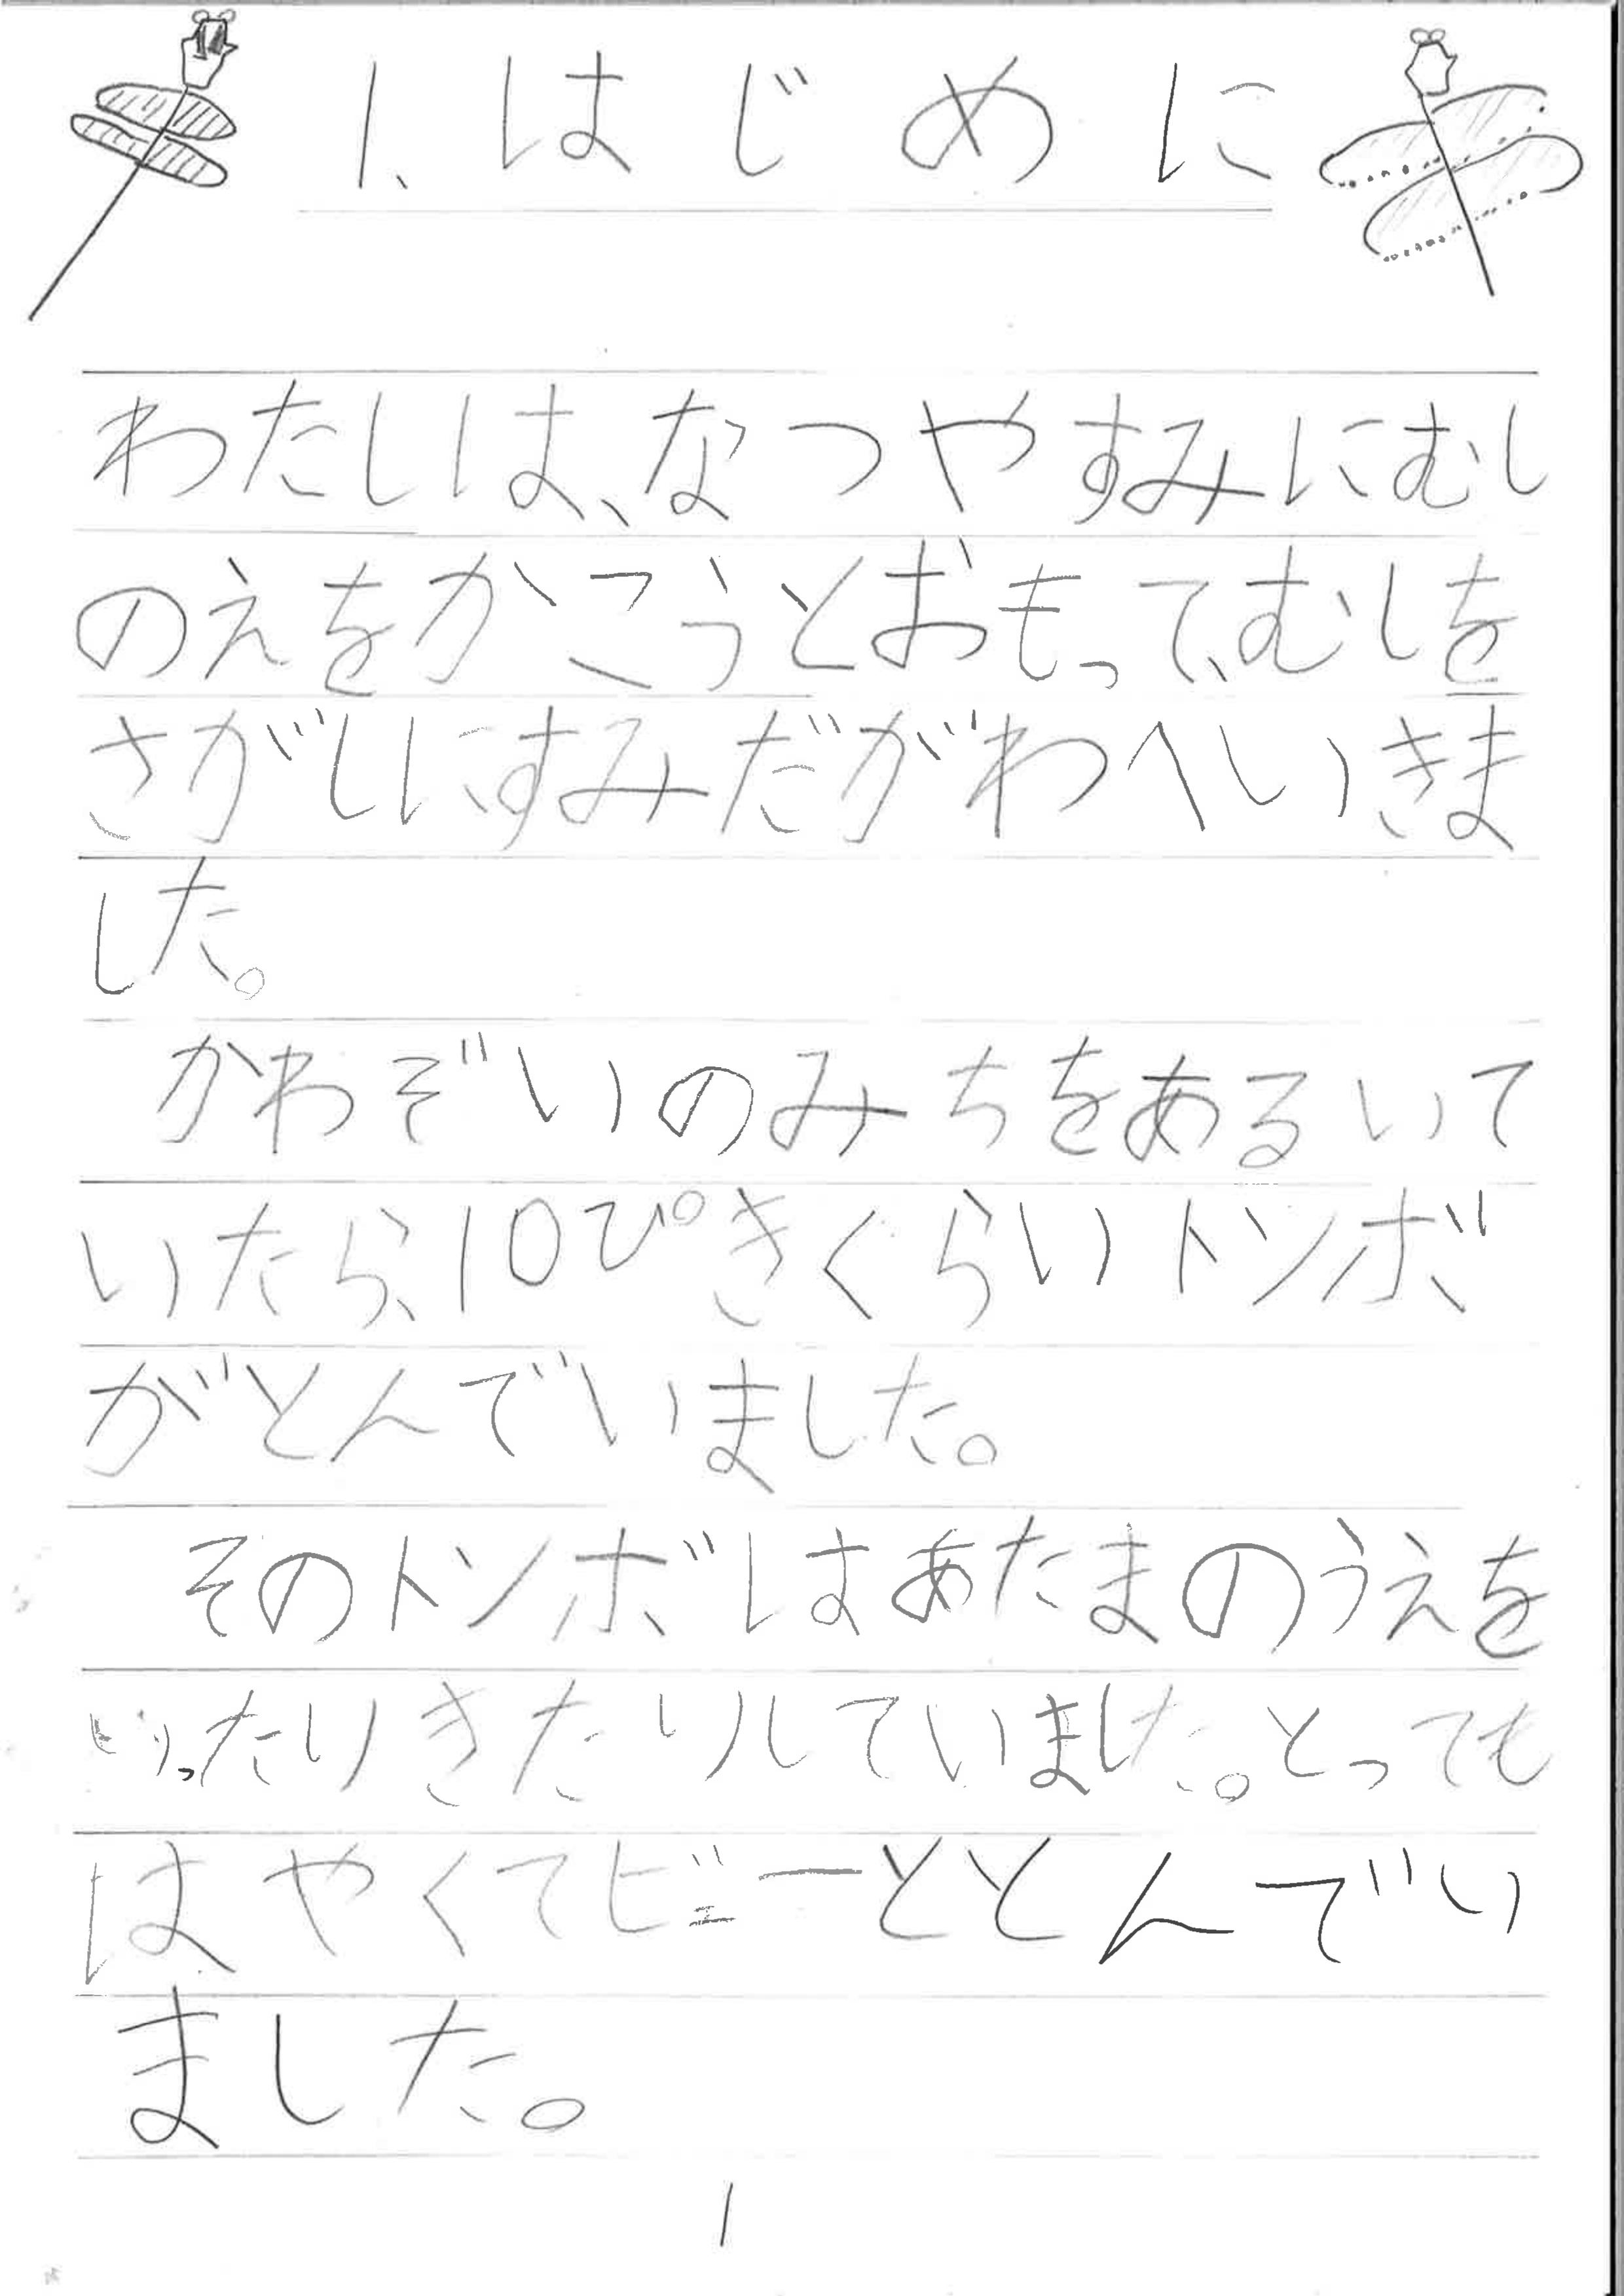 1、はじめに
わたしは、なつやすみにむし
のえをかこうとおもって、むしを
さがしにすみだがわへいきま
した。
かわぞいのみちをあるいて
いたら、10ぴきくらいトンボ
がとんでいました。
そのトンボはあたまのうえを
いったりきたりしていました。とっても
はやくてビューととんでい
ました。
1